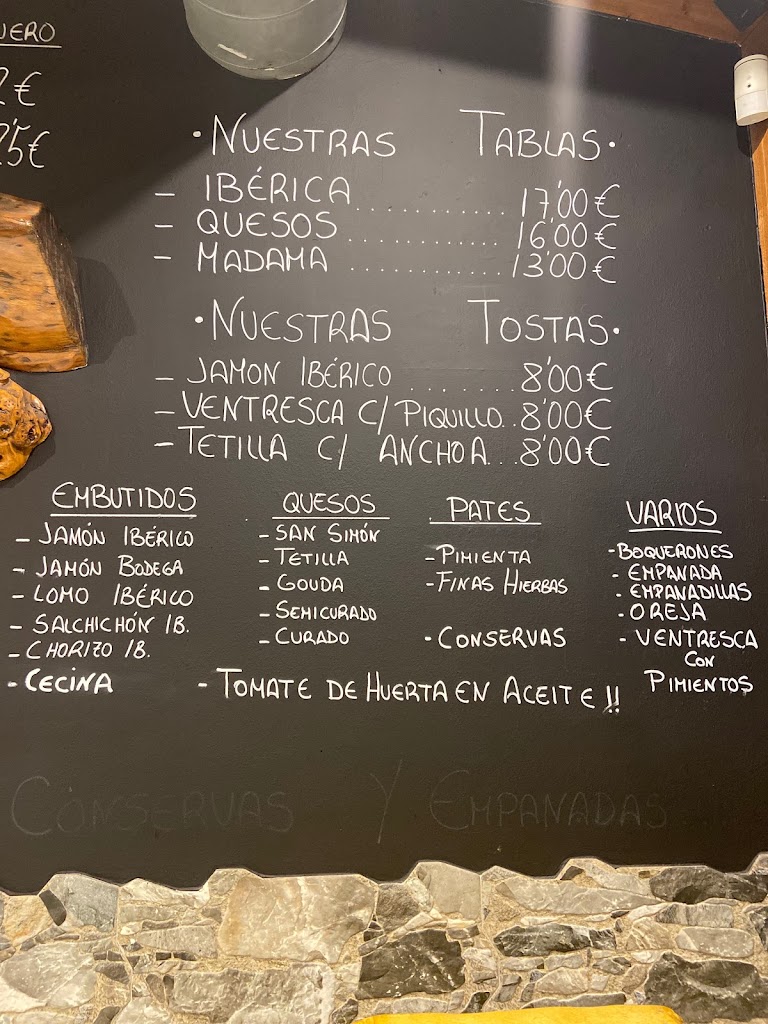 2€
25€
· NUESTRAS TABLAS ·
- IBÉRICA ............ 17'00€
- QUESOS ............ 16'00€
- MADAMA ............ 13'00€
· NUESTRAS TOSTAS ·
- JAMON IBÉRICO ........ 8'00€
- VENTRESCA C/ PIQUILLO... 8'00€
- TETILLA C/ ANCHOA... 8'00€
EMBUTIDOS
- JAMÓN IBÉRICO
- JAMÓN BODEGA
- LOMO IBÉRICO
- SALCHICHÓN IB.
- CHORIZO IB.
- CECINA
QUESOS
- SAN SIMÓN
- TETILLA
- GOUDA
- SEMICURADO
- CURADO
PATES
- PIMIENTA
- FINAS HIERBAS
- CONSERVAS
VARIOS
- BOQUERONES
- EMPANADA
- EMPANADILLAS
- OREJA
- VENTRESCA
CON
PIMIENTOS
- TOMATE DE HUERTA EN ACEITE!!
CONSERVAS Y EMPANADAS